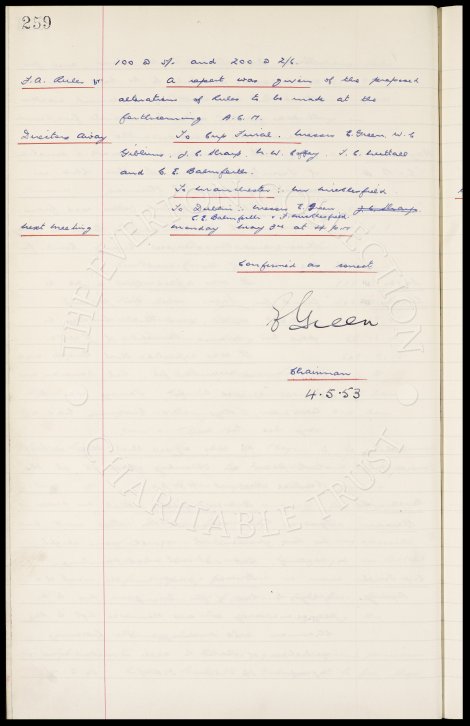 259
100 @ 5/- and 200 @ 2/6.
F.A. Rules A report was given of the proposed
alterations of Rules to be made at the
forthcoming A.G.M.
Directors Away To Cup Final. Messrs E. Green, W.C.
Gibbins, J.C. Sharp, N.W. Coffey, T.C. Nuttall
and C.E. Balmforth.
To Manchester: Mr Micklesfield
To Dublin: Messrs E. Green J.C. Sharp
C.E. Balmforth & F. Micklesfield.
Next Meeting Monday May 3rd at 4 p.m
Confirmed as correct
E Green
Chairman
4.5.53
THE EVERTON COLLECTION
CHARITABLE TRUST